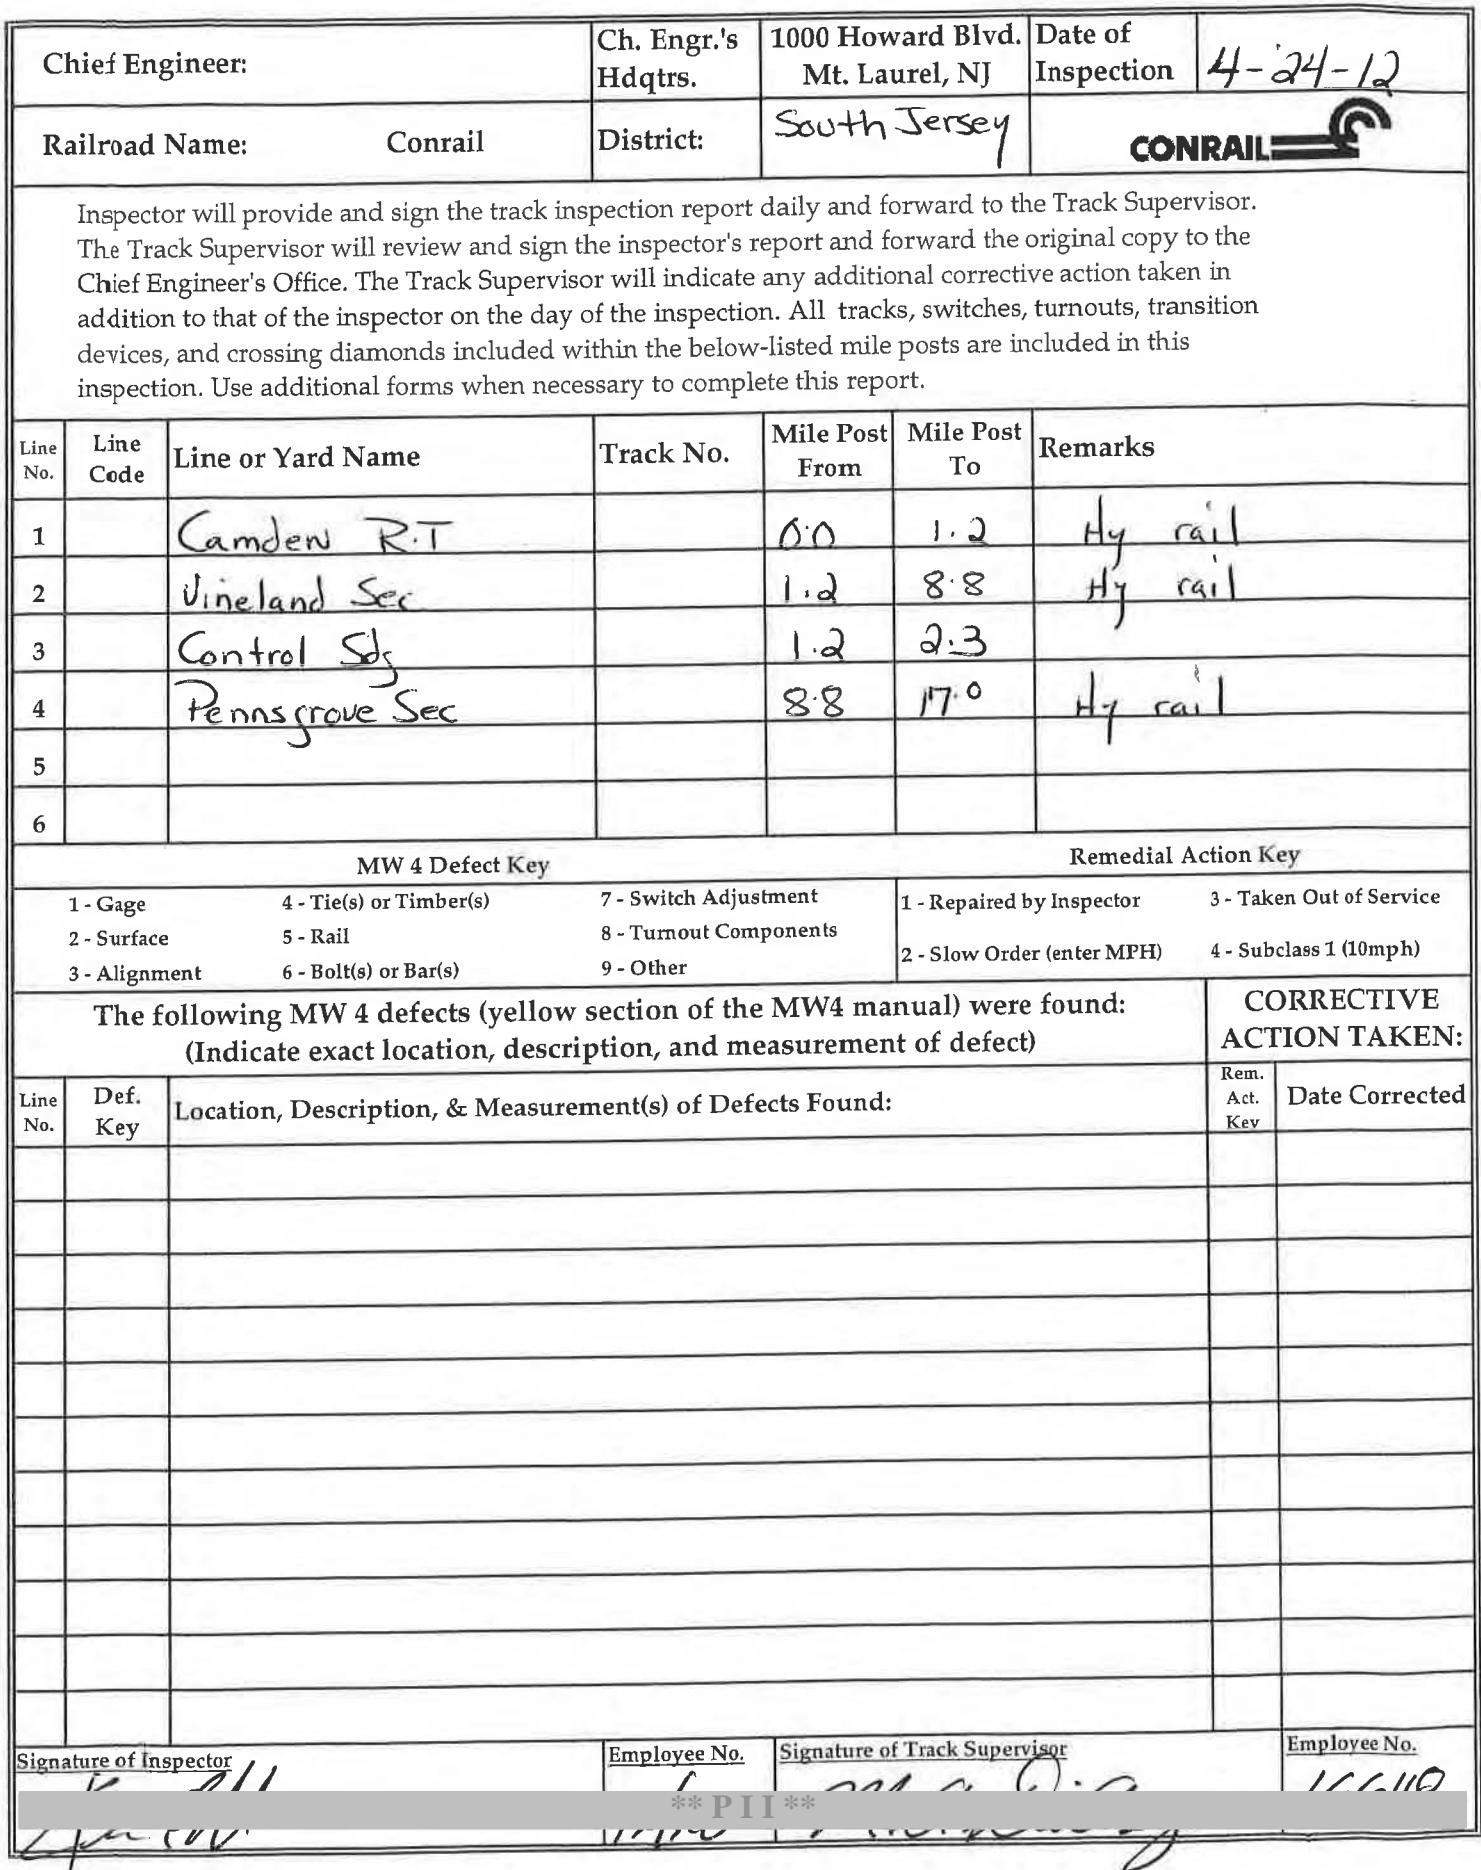 Chief Engineer:
Ch. Engr.'s Hdqtrs.
1000 Howard Blvd. Mt. Laurel, NJ
Date of Inspection
4-24-12
Railroad Name: Conrail
District:
South Jersey
CONRAIL
Inspector will provide and sign the track inspection report daily and forward to the Track Supervisor.
The Track Supervisor will review and sign the inspector's report and forward the original copy to the
Chief Engineer's Office. The Track Supervisor will indicate any additional corrective action taken in
addition to that of the inspector on the day of the inspection. All tracks, switches, turnouts, transition
devices, and crossing diamonds included within the below-listed mile posts are included in this
inspection. Use additional forms when necessary to complete this report.
Line No. Line Code Line or Yard Name Track No. Mile Post From Mile Post To Remarks
1 Camden R.T 0.0 1.2 Hy rail
2 Vineland Sec 1.2 8.8 Hy rail
3 Control Sdg 1.2 2.3
4 Pennsgrove Sec 8.8 17.0 Hy rail
5
6
MW 4 Defect Key Remedial Action Key
1 - Gage 4 - Tie(s) or Timber(s) 7 - Switch Adjustment 1 - Repaired by Inspector 3 - Taken Out of Service
2 - Surface 5 - Rail 8 - Turnout Components
2 - Slow Order (enter MPH) 4 - Subclass 1 (10mph)
3 - Alignment 6 - Bolt(s) or Bar(s) 9 - Other
The following MW 4 defects (yellow section of the MW4 manual) were found:
(Indicate exact location, description, and measurement of defect)
CORRECTIVE
ACTION TAKEN:
Line No. Def. Key Location, Description, & Measurement(s) of Defects Found: Rem. Act. Key Date Corrected
Signature of Inspector Employee No. Signature of Track Supervisor Employee No.
** P I I **